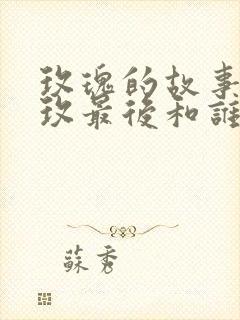 玫瑰的故事
玫最後和誰
蘇秀